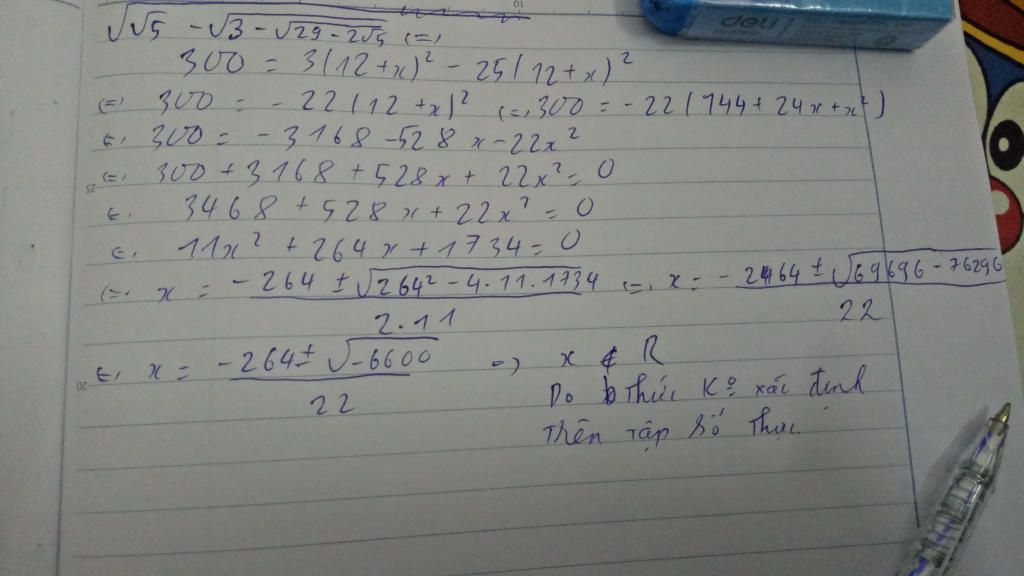 √√5 - √3 - √29 - 2√5 (=)
300 = 3(12+x)² - 25(12+x)²
(=) 300 = -22(12+x)² (=) 300 = -22(144 + 24x + x²)
(=) 300 = -3168 - 528x - 22x²
(=) 300 + 3168 + 528x + 22x² = 0
(=) 3468 + 528x + 22x² = 0
(=) 11x² + 264x + 1734 = 0
(=) x = (-264 ± √264² - 4.11.1734) / 2.11 (=) x = (-264 ± √69696 - 76296) / 22
(=) x = (-264 ± √-6600) / 22 => x ∉ R
Do b thức Kº xác định
trên tập số thực.
deli